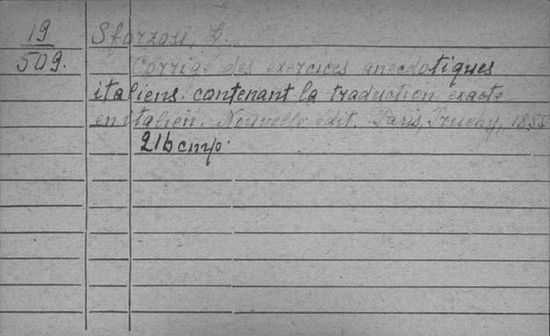 19
509.
Sforzosi, L.
Corrigé des exercices anecdotiques
italiens. contenant la traduction exacte
en italien. Nouvelle edit. Paris, Truchy, 1855
216 стр.